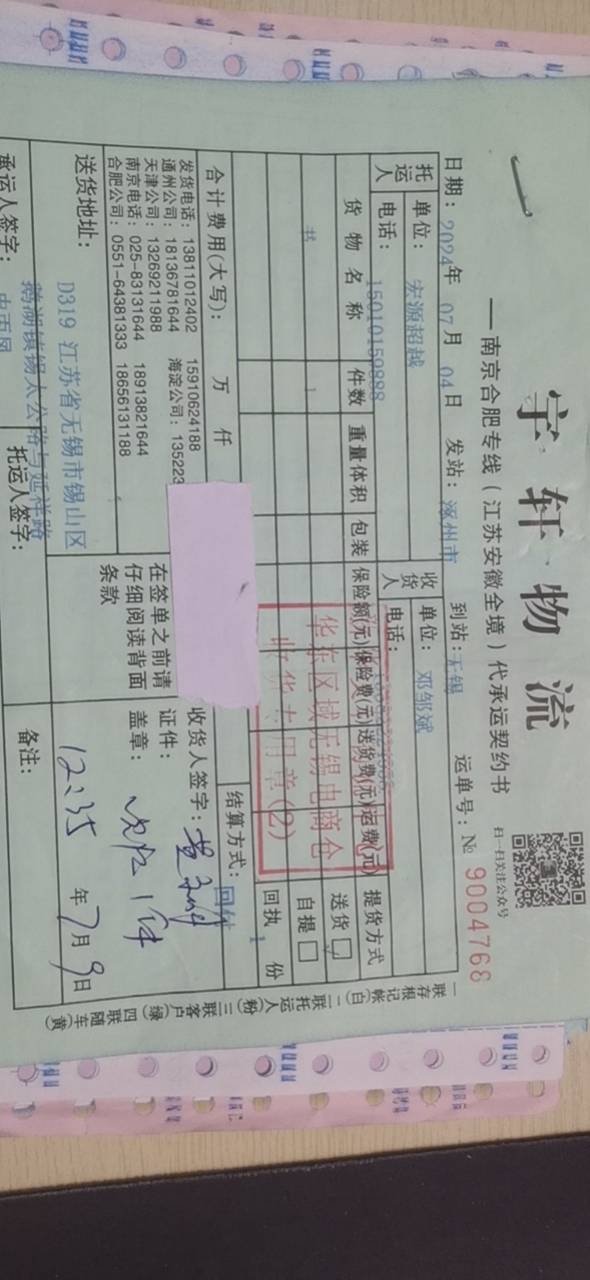 宇轩物流
扫一扫关注公众号
—南京合肥专线(江苏安徽全境)代承运契约书
日期:2024年 07月 04日 发站:涿州市 到站:无锡 运单号:№ 9004768
托运人 单位:宏源超越 收货人 单位:邓邹斌
电话:15010159888 电话:
货物名称 件数 重量体积 包装 保险额(元) 保险费(元) 送货费(元) 运费(元) 提货方式
书 1 送货
自提
回执 1 份
华东区域无锡电商仓
收货专用章(2)
合计费用(大写): 万 仟 结算方式:回付
发货电话:13811012402 15910624188
通州公司:18136781644 海淀公司:135223
天津公司:13269211988
南京电话:025-83131644 18913821644
合肥公司:0551-64381333 18656131188
在签单之前请
仔细阅读背面
条款
收货人签字:
证件:
盖章:
收1件
送货地址: D319 江苏省无锡市锡山区
鹅湖镇锡太公路与延祥路
12:35 年7月9日
承运人签字: 托运人签字: 备注:
一联存根记帐(白) 二联托运人(粉) 三联客户(绿) 四联随车(黄)